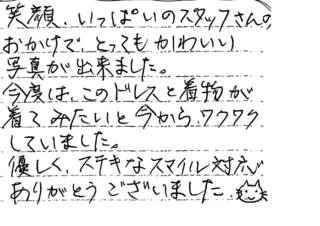 笑顔、いっぱいのスタッフさんの
おかげで、とってもかわいい
写真が出来ました。
今度は、このドレスと着物が
着てみたいと今から、ワクワク
していました。
優しく、ステキなスマイル対応
ありがとうございました